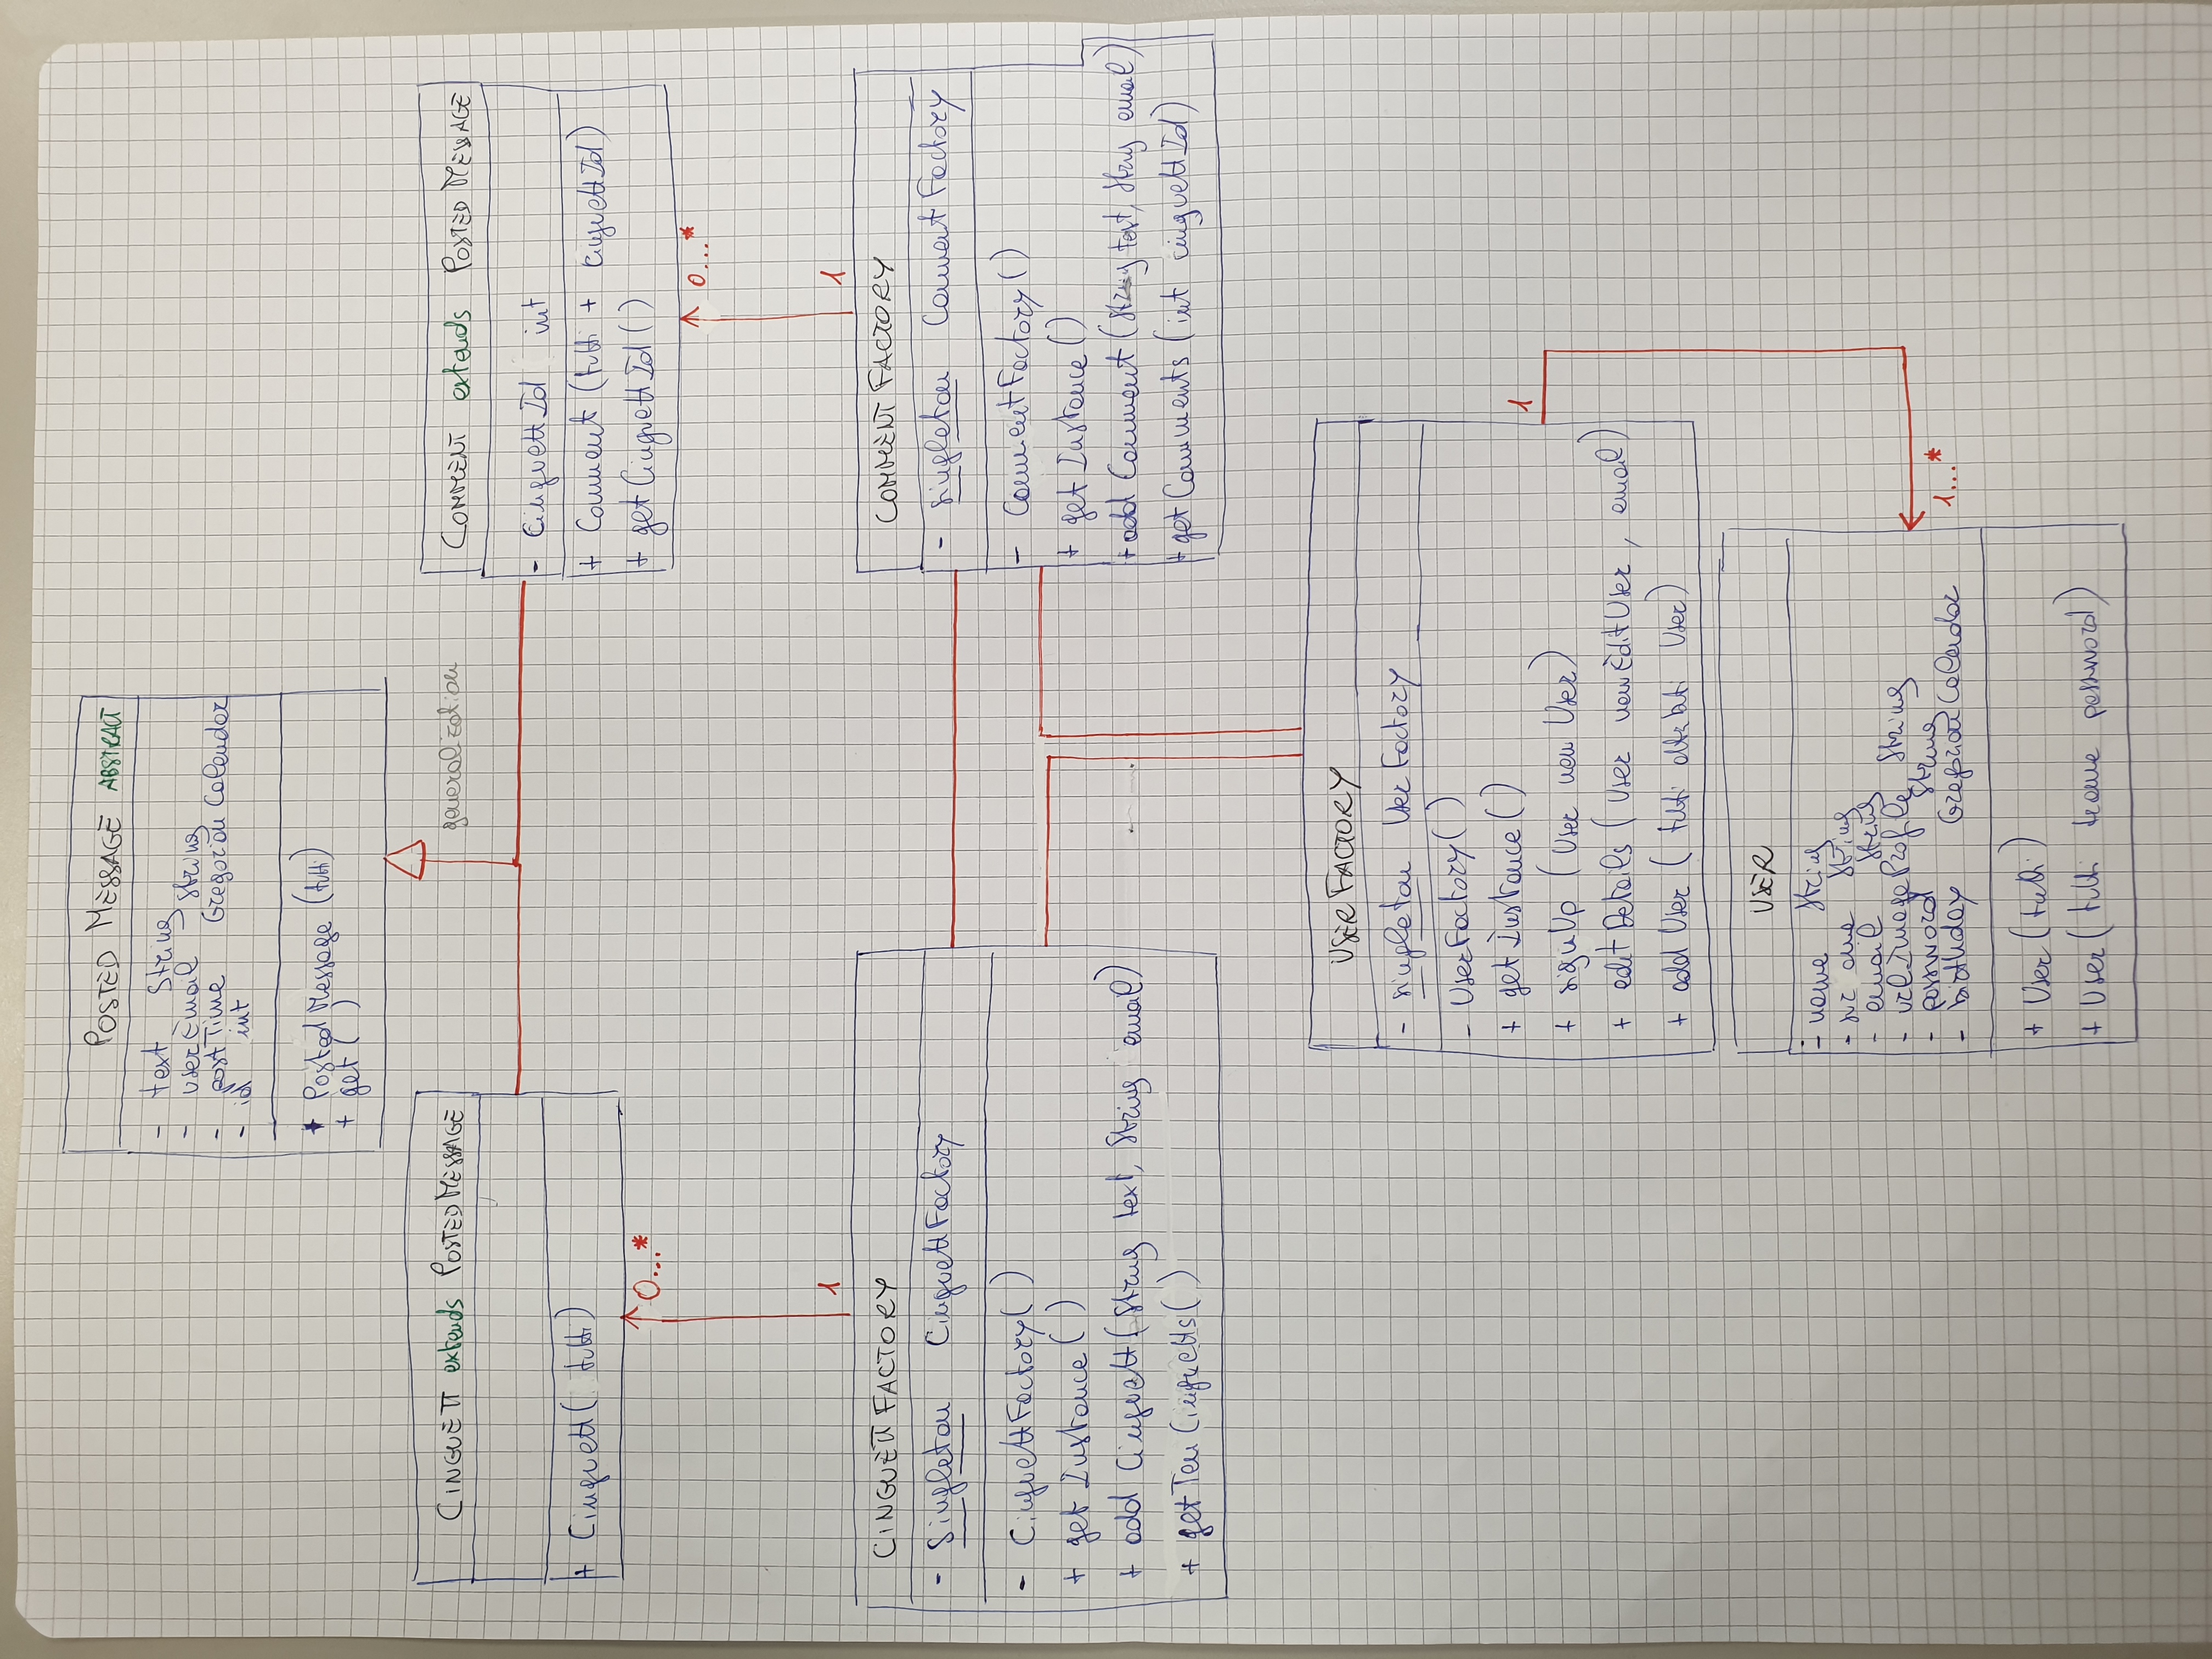 POSTED MESSAGE ABSTRACT
- text String
- userEmail String
- postTime Gregorian Calendar
- id int
+ Posted Message (tutti)
+ get ( )
generalization
CINGUETT extends POSTED MESSAGE
+ Cinguett ( tutti )
0...*
1
COMMENT extends POSTED MESSAGE
- CinguettId int
+ Comment (tutti + cinguettId)
+ getCinguettId ( )
0...*
1
CINGUETT FACTORY
- Singleton CinguettFactory
- CinguettFactory ( )
+ get Instance ( )
+ add Cinguett (String text, String email)
+ getTenCinguetts ( )
COMMENT FACTORY
- singleton Comment Factory
- CommentFactory ( )
+ get Instance ( )
+ add Comment (String text, String email)
+ getComments (int cinguettId)
USER FACTORY
- singleton User Factory
- UserFactory ( )
+ get Instance ( )
+ signUp (User new User)
+ editDetails (User newEditUser, email)
+ add User ( tutti attributi User)
1
USER
- name String
- email String
- urlImageProfile String
- password String
- birthday GregorianCalendar
1...*
+ User (tutti)
+ User ( tutti tranne password)